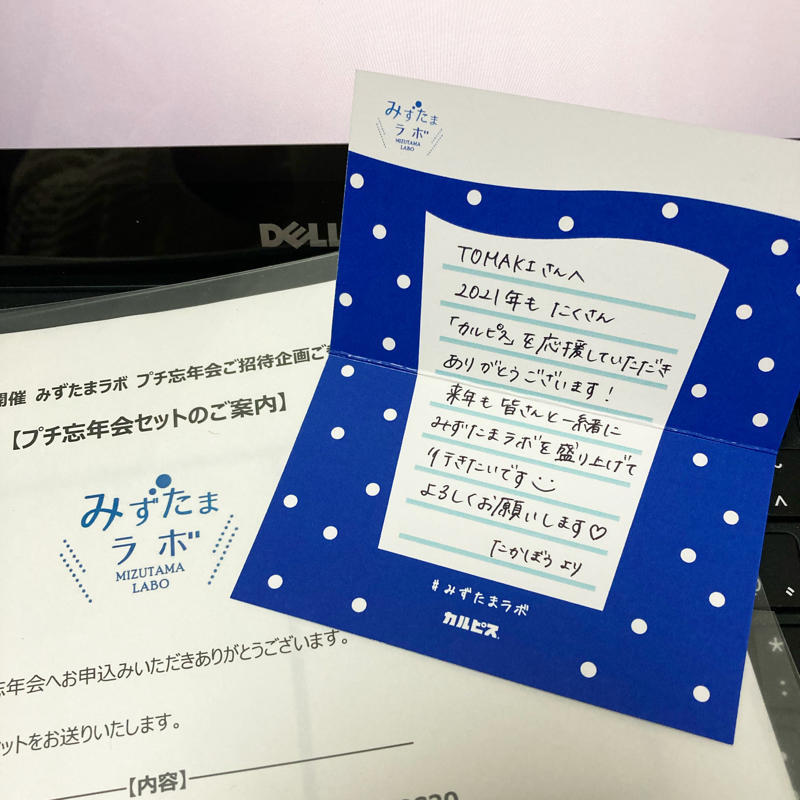 みずたま
ラボ
MIZUTAMA
LABO
DELL
TOMAKIさんへ
2021年も たくさん
「カルピス」を応援していただき
ありがとうございます！
来年も 皆さんと一緒に
みずたまラボを盛り上げて
行きたいです
よろしくお願いします♡
たかぼう より
#みずたまラボ
カルピス
開催 みずたまラボ プチ忘年会ご招待企画ご
【プチ忘年会セットのご案内】
みずたま
ラボ
MIZUTAMA
LABO
忘年会へお申込みいただきありがとうございます。
ットをお送りいたします。
【内容】